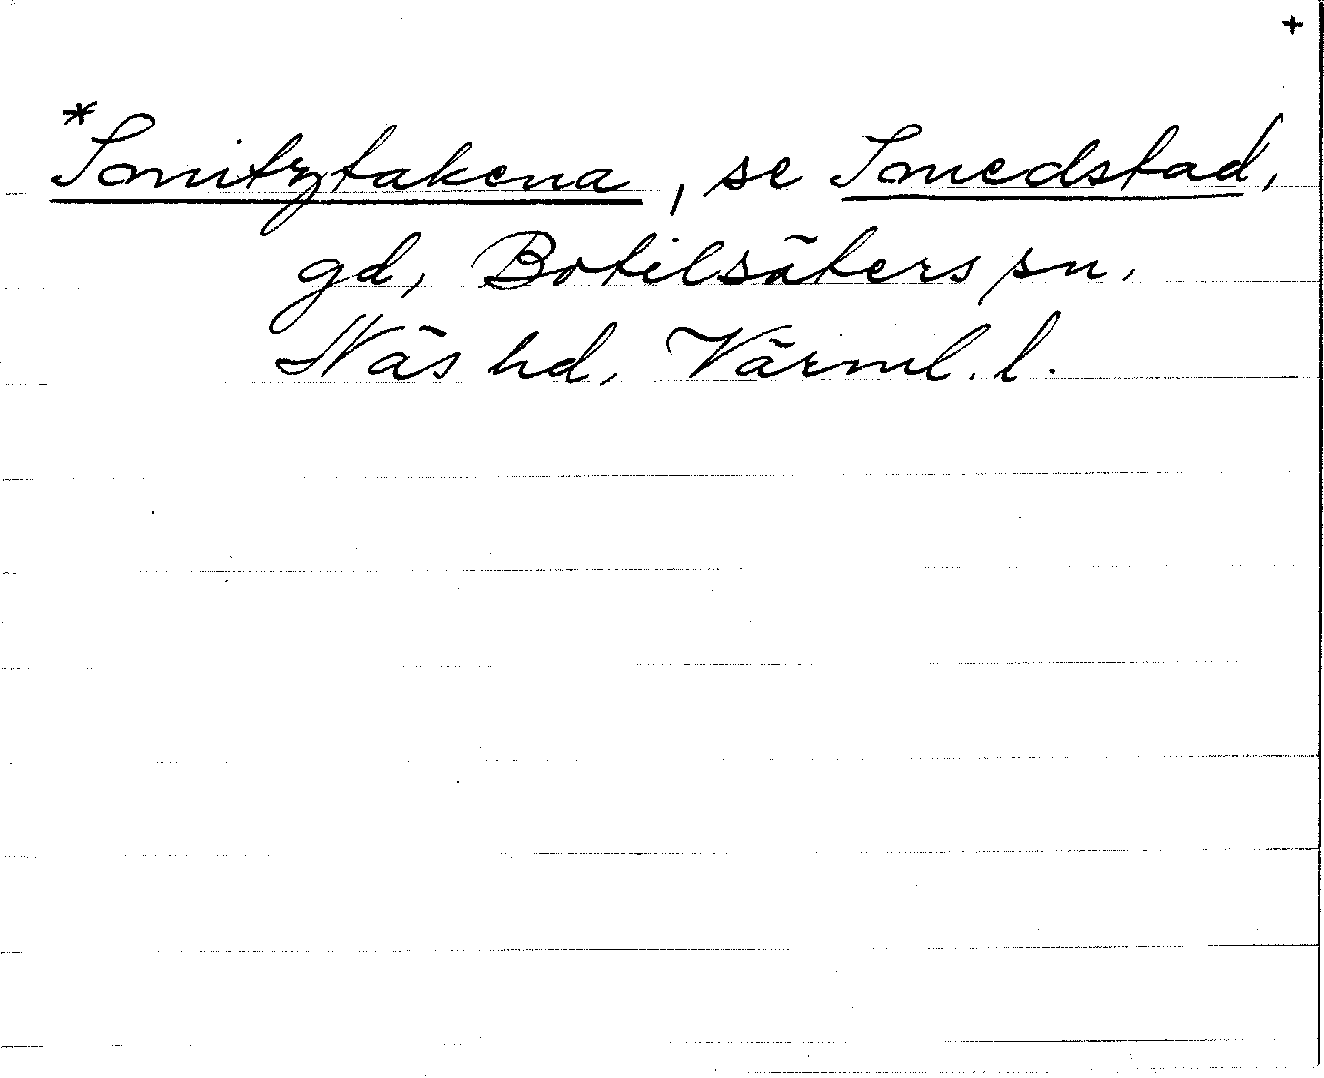 +
*Smitztakena, se Smedstad,
gd, Botilsäters sn,
Näs hd, Värml. l.